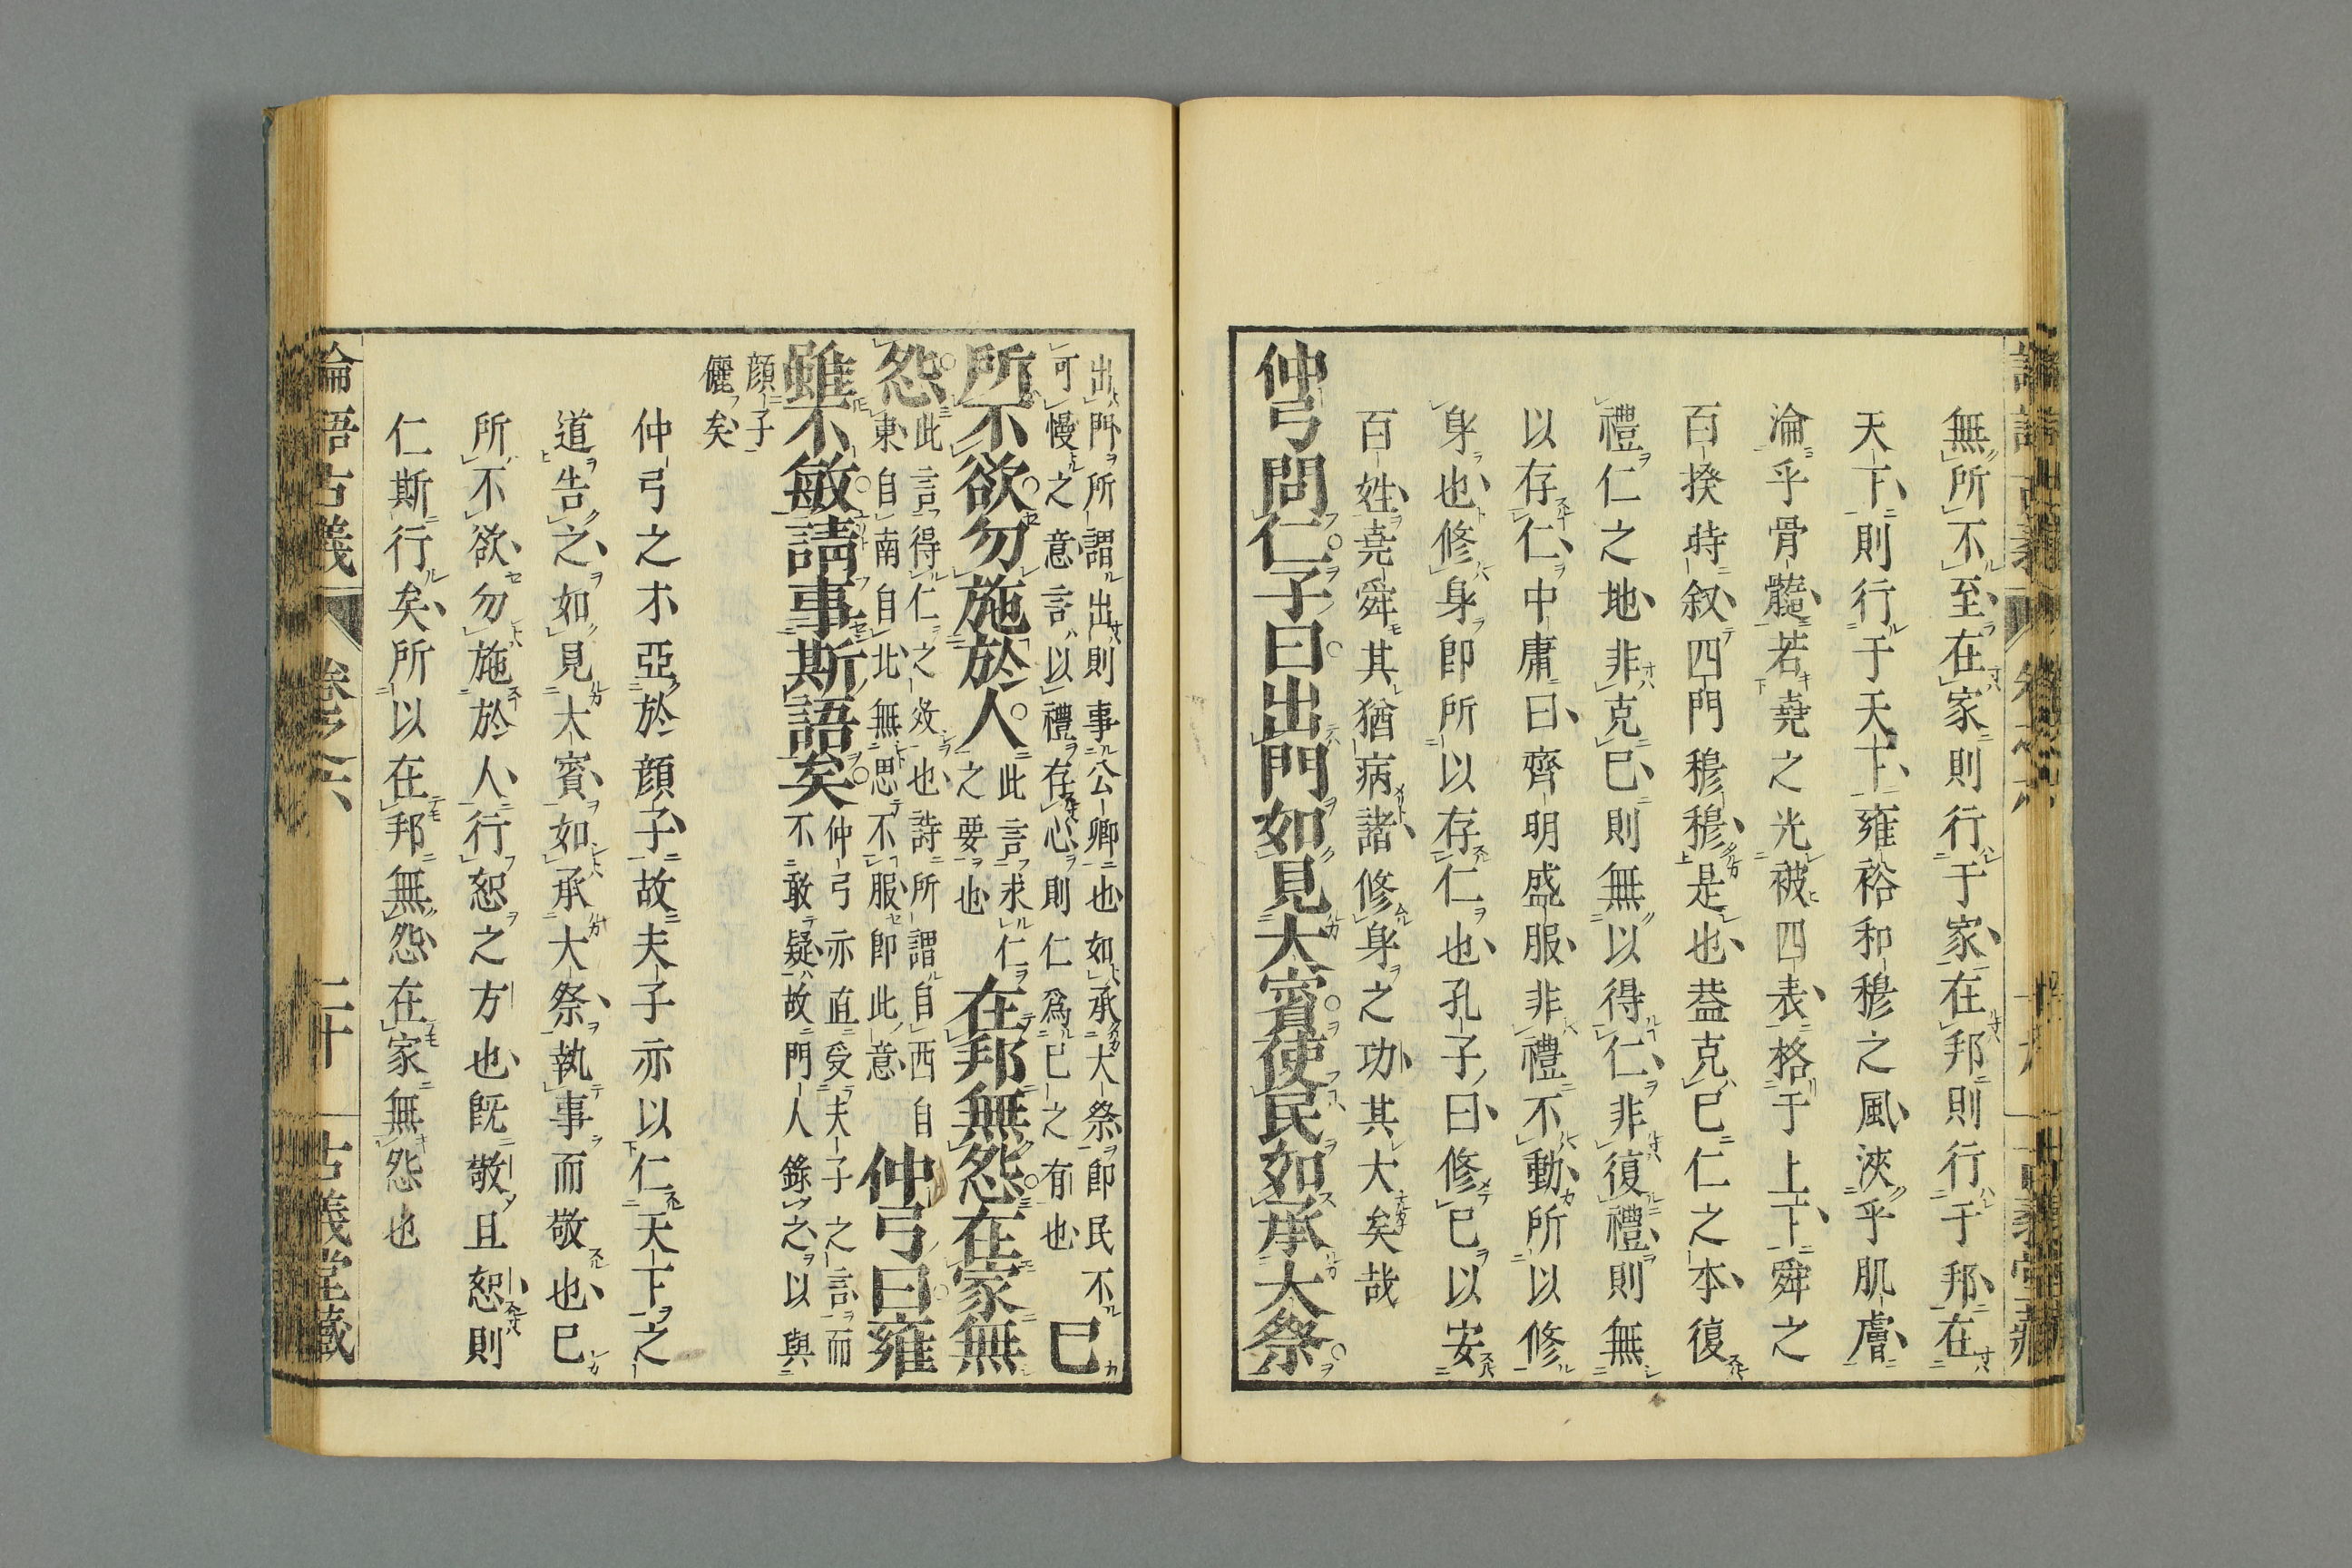 無所不至在家則行于家在邦則行于邦在
天下則行于天下雍裕和穆之風浹乎肌膚
淪乎骨髓若堯之光被四表格于上下舜之
百揆時叙四門穆穆是也葢克己仁之本復
禮仁之地非克己則無以得仁非復禮則無
以存仁中庸曰齊明盛服非禮不動所以修
身也修身卽所以存仁也孔子曰修己以安
百姓堯舜其猶病諸修身之功其大矣哉
仲弓問仁子曰出門如見大賓使民如承大祭
出門所謂出則事公卿也如承大祭卽民不
可慢之意言以禮存心則仁爲己之有也
己
所不欲勿施於人
此言求仁
之要也
在邦無怨在家無
怨
此言得仁之效也詩所謂自西自
東自南自北無思不服卽此意
仲弓曰雍
雖不敏請事斯語矣
仲弓亦直受夫子之言而
不敢疑故門人錄之以與
顔子
儷矣
仲弓之才亞於顔子故夫子亦以仁天下之
道告之如見大賓如承大祭執事而敬也己
所不欲勿施於人行恕之方也旣敬且恕則
仁斯行矣所以在邦無怨在家無怨也
論語古義
卷之六
二十
古義堂藏